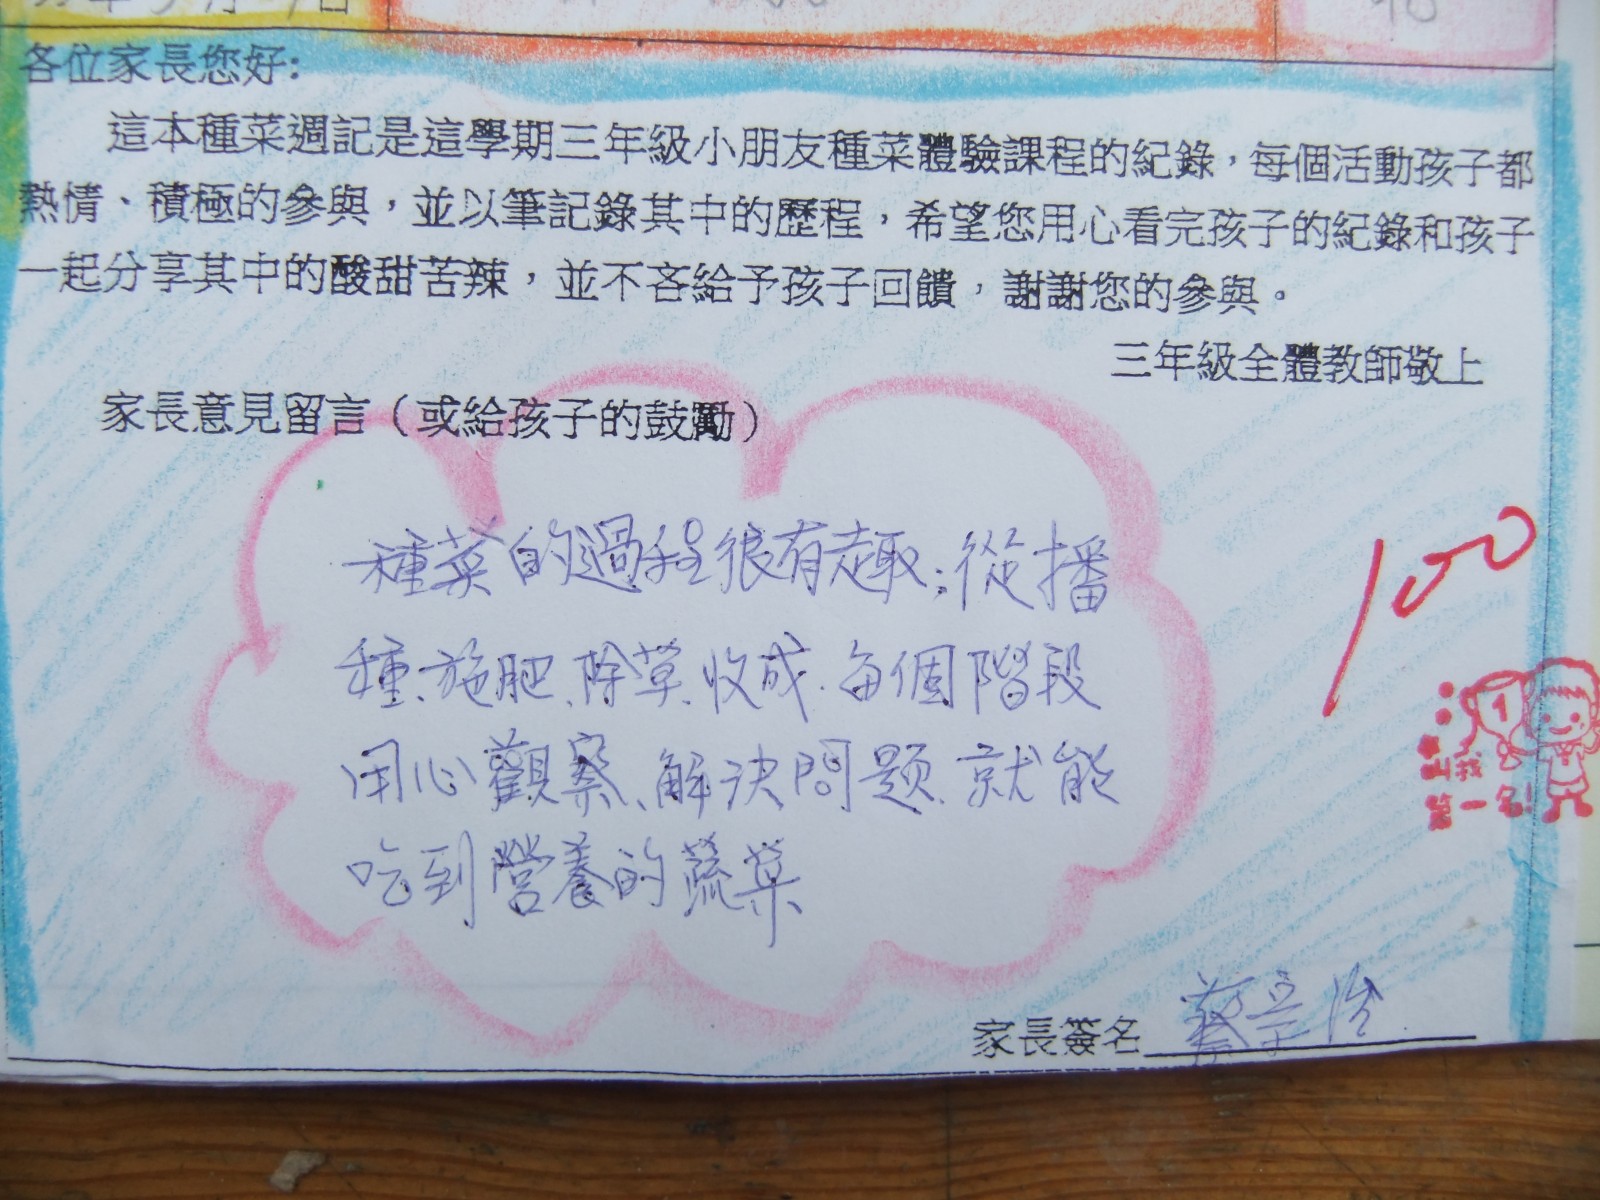 各位家長您好:
這本種菜週記是這學期三年級小朋友種菜體驗課程的紀錄，每個活動孩子都
熱情、積極的參與，並以筆記錄其中的歷程，希望您用心看完孩子的紀錄和孩子
一起分享其中的酸甜苦辣，並不吝給予孩子回饋，謝謝您的參與。
三年級全體教師敬上
家長意見留言（或給孩子的鼓勵）
種菜的過程很有趣;從播
種、施肥、除草、收成、每個階段
用心觀察、解決問題、就能
吃到營養的蔬菜
100
1
我
第一名!
家長簽名 蔡宗